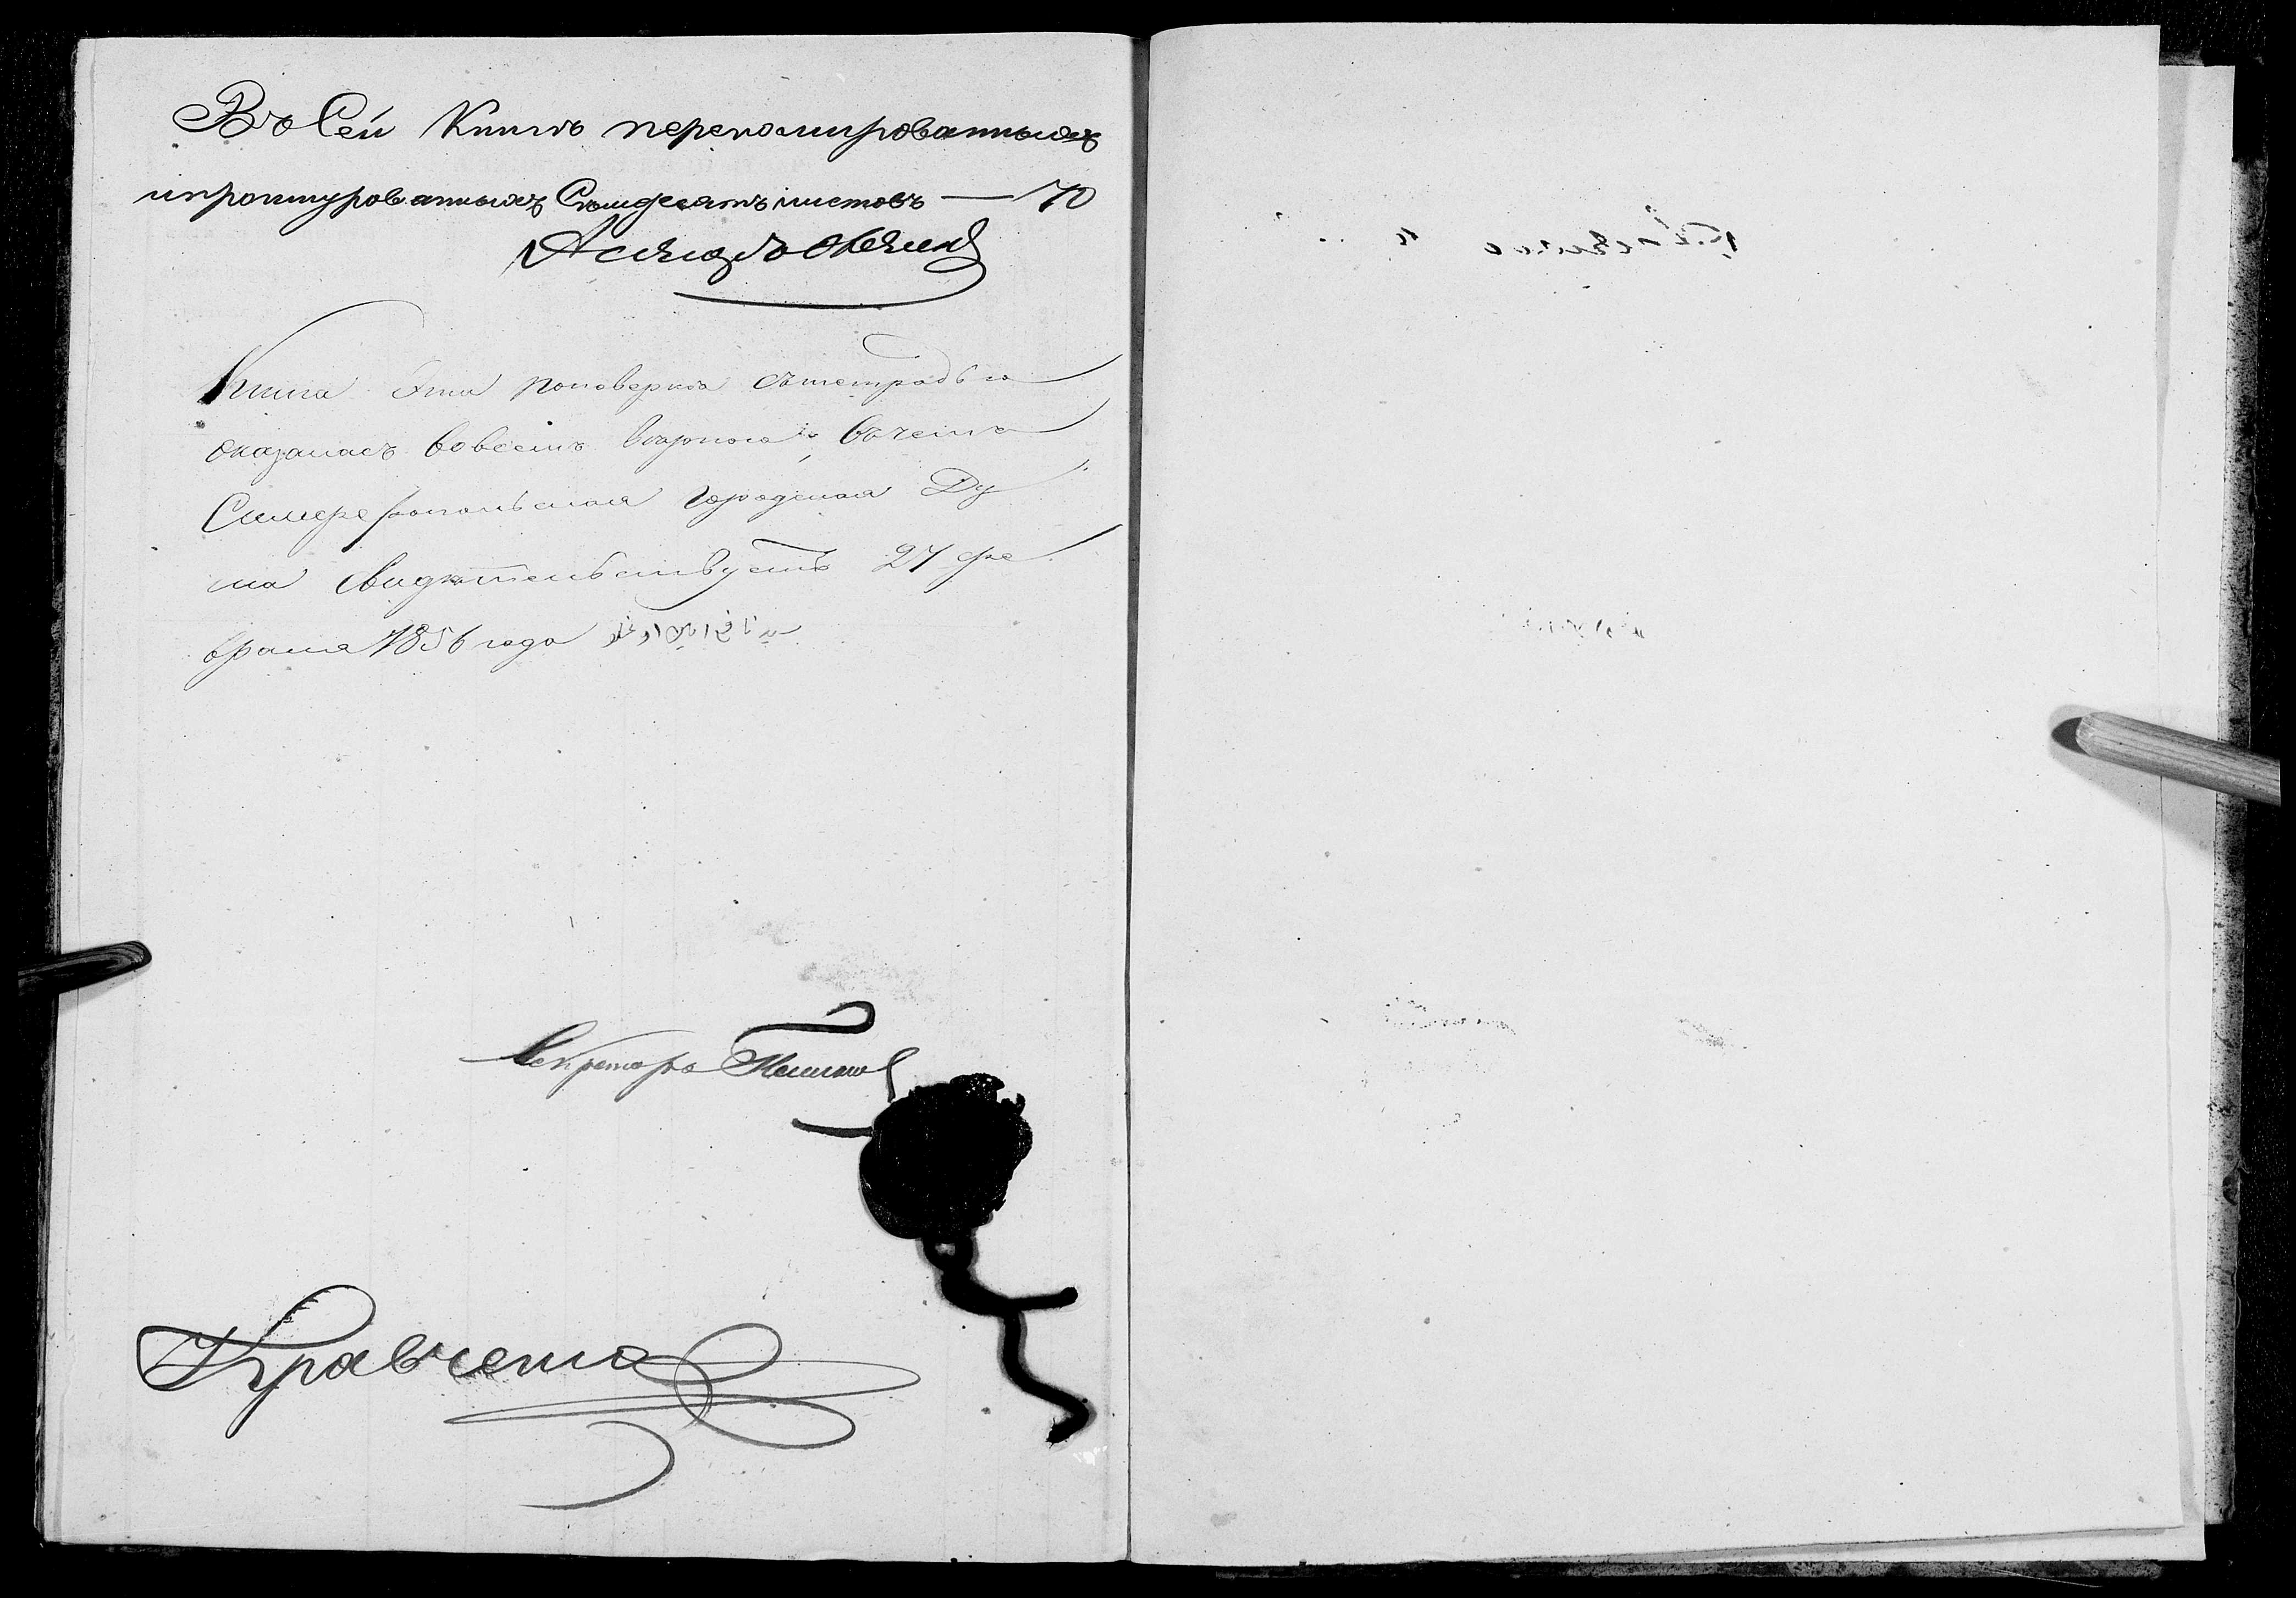 Въ Сей Книгѣ переномированныхъ
и проштурованныхъ Семдесятъ листовъ — 70
Книга Эта поповеркѣ стетрадью
оказалась вовсемъ верною, вчемъ
Симферопольская Городская Ду
ма свидѣтельствуетъ 27 фе
враля 1856 года
Секретарь
Кравченко